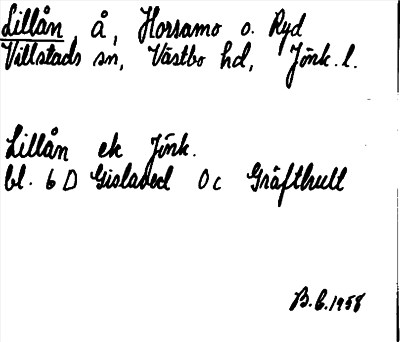 Lillån, å, Horsamo o. Ryd
Villstads sn, Västbo hd, Jönk. l.
Lillån ek Jönk.
bl. 6 D Gislaved 0 c Gräfthult
B.C. 1958